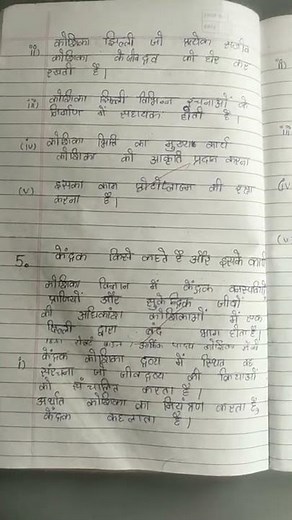 ii) कोशिका झिल्ली जो प्रत्येक सजीव
कोशिका के जीवद्रव को घेर कर
रखती है।
iii) कोशिका झिल्ली विभिन्न रचनाओं के
निर्माण में सहायक होती है।
(iv) कोशिका भित्ति का मुख्य कार्य
कोशिका को आकृति प्रदान करना
(v) इसका काम प्रोटोप्लाज्म की रक्षा
करना है।
5. केंद्रक किसे कहते हैं और इसके कार्य
कोशिका विज्ञान में केंद्रक वनस्पतियों
प्राणियों और सुकेंद्रिक जीवों
की अधिकांश कोशिकाओं में एक
झिल्ली द्वारा बंद भाग होता है।
i) केंद्रक कोशिका द्रव्य में स्थित वह
संरचना जो जीवद्रव्य की क्रियाओं
को संचालित करता है।
अर्थात कोशिका का नियंत्रण करता है,
केंद्रक कहलाता है।
ii)
(v